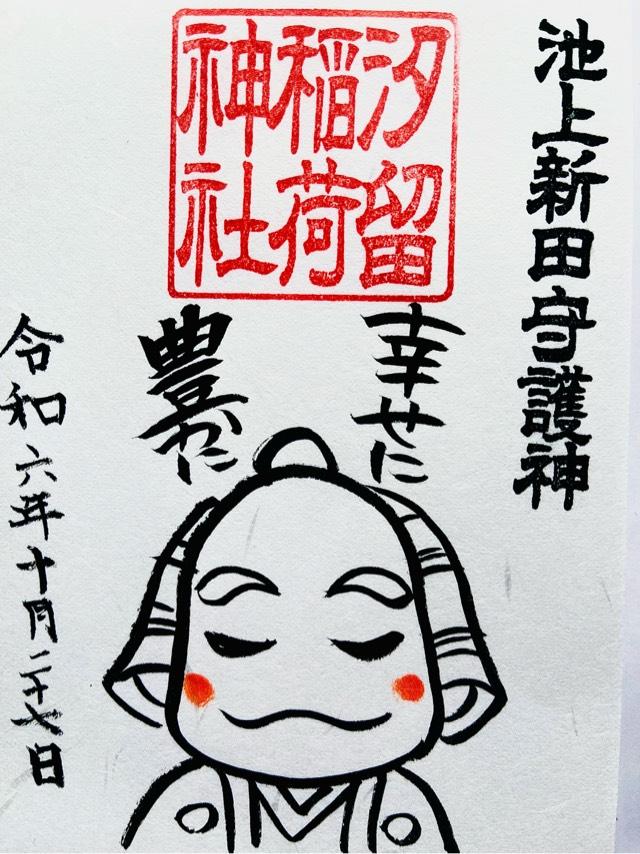 池上新田守護神
汐留
稲荷
神社
幸せに
豊かに
令和六年十月二十七日